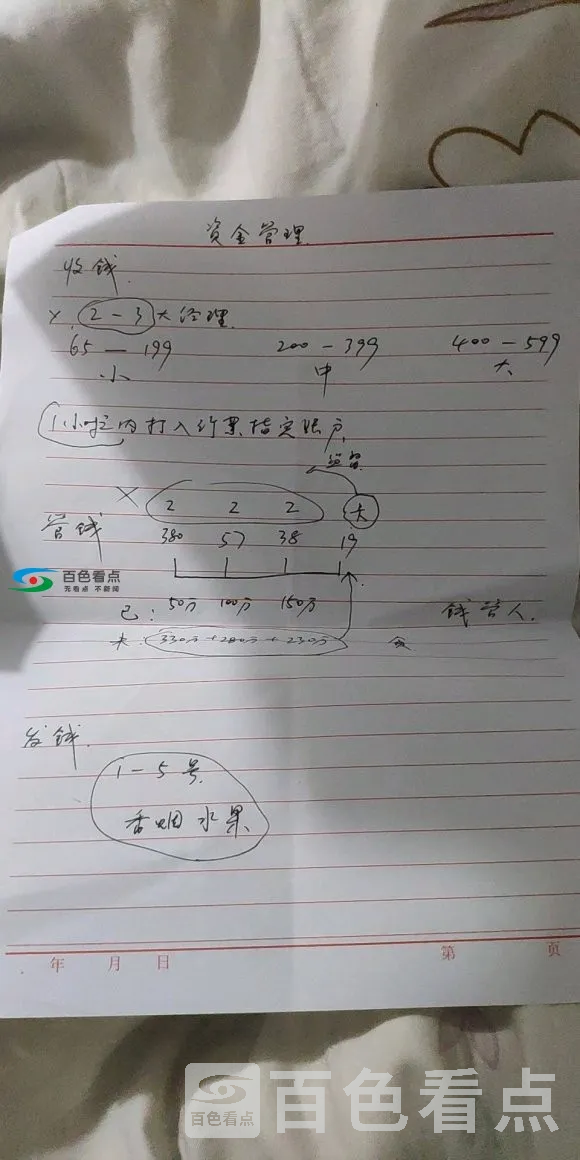 资金管理
收钱.
X (2-3)大经理.
65 — 199 200 - 399 400 - 599
小 中 大
1小时内打入行业指定账户.
监管
X 2 2 2 大
管钱 380 57 38 19
百色看点
无看点 不新闻
已: 50万 100万 150万 钱管人.
未: 330万+280万+230万
发钱.
1-5号.
香烟 水果
年 月 日 第 页
百色看点
百色看点